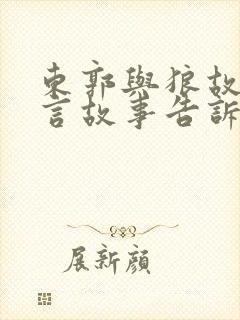 東郭與狼故
言故事告訴
展新顏